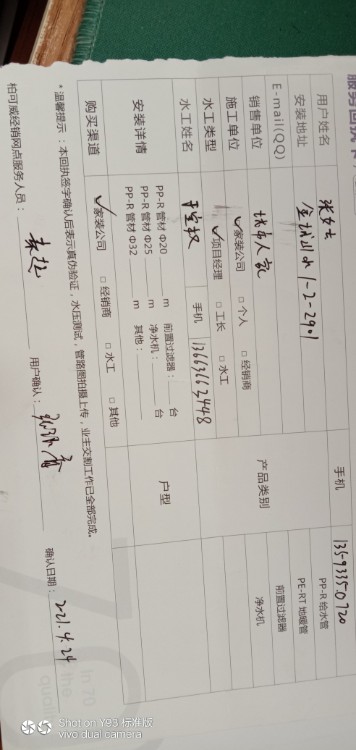 服务回执卡
用户姓名 手机 13593350720
安装地址 金域山水1-2-2901
E-mail(QQ) 产品类别 PP-R 给水管
PE-RT 地暖管
前置过滤器
净水机
销售单位
施工单位 ✓家装公司 □个人 □经销商
水工类型 ✓项目经理 □工长 □水工
水工姓名 手机 13663662448
安装详情 PP-R 管材 Φ20 m 前置过滤器: 台 户型
PP-R 管材 Φ25 m 净水机: 台
PP-R 管材 Φ32 m 其他:
购买渠道 ✓家装公司 □经销商 □水工 □其他
*温馨提示:本回执签字确认后表示真伪验证,水压测试,管路图拍摄上传,业主交割工作已全部完成。
柏可威经销网点服务人员: 用户确认: 确认日期: 221.4.24
In 20
the
quali
Shot on Y93 标准版
vivo dual camera